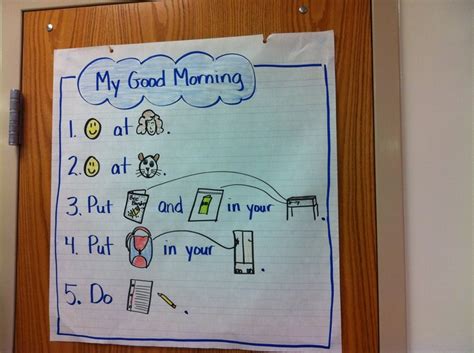 My Good Morning
1. at .
2. at .
3. Put and in your .
4. Put in your .
5. Do .